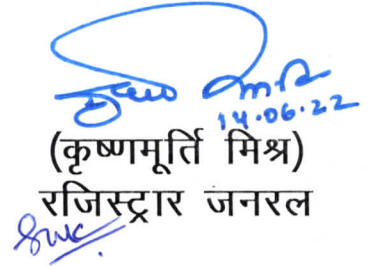 14.06.22
(कृष्णमूर्ति मिश्र)
रजिस्ट्रार जनरल